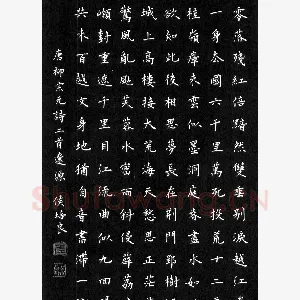 零落殘紅倍黯然雙垂別淚越江
一身去國六千里萬死投荒十二
桂嶺瘴來雲似墨洞庭春盡水如
欲知此後相思夢長在荊門郢樹
城上高樓接大荒海天愁思正茫
驚風亂颭芙蓉水密雨斜侵薜荔
嶺樹重遮千里目江流曲似九回
共來百越文身地猶自音書滯一
唐柳宗元詩二首遼源侯培良
Shufawang.CN